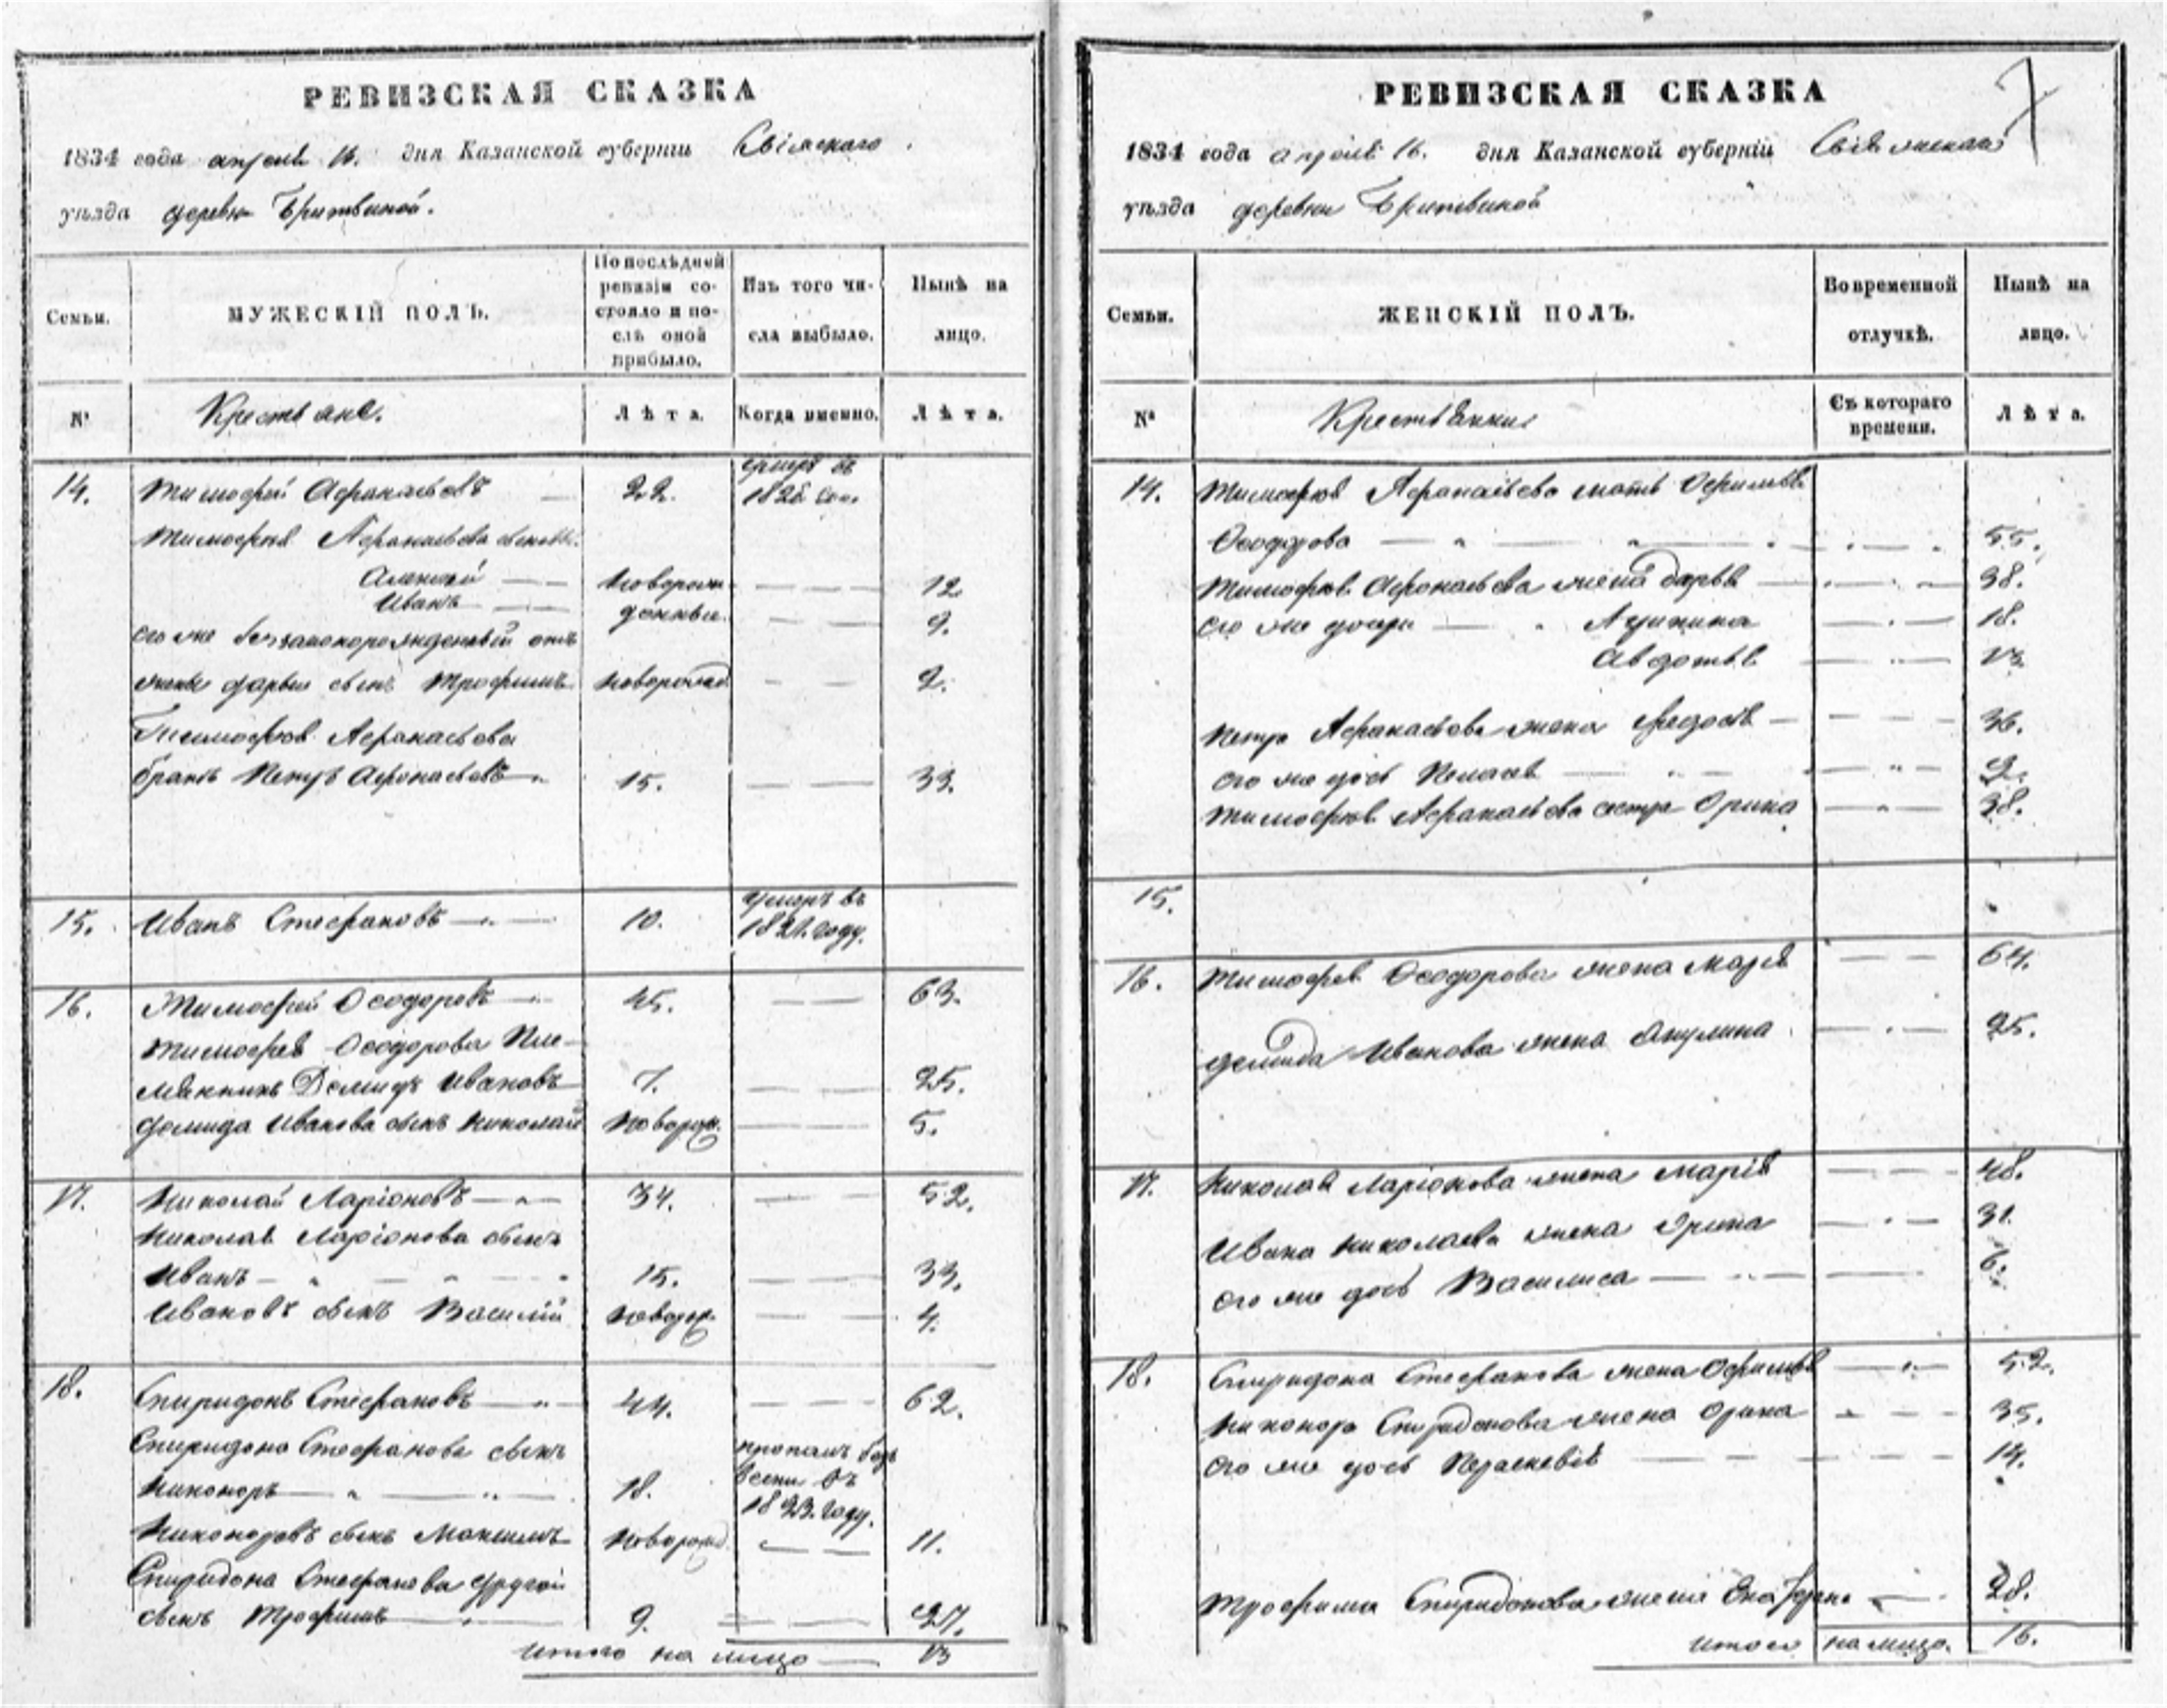 РЕВИЗСКАЯ СКАЗКА
1834 года апреля 16. дня Казанской губерніи Свіяжскаго
уѣзда деревни Бритвиной.
Семьи.
МУЖЕСКІЙ ПОЛЪ.
По послѣдней ревизіи состояло и послѣ оной прибыло.
Изъ того числа выбыло.
Нынѣ на лицо.
№
Крестьяне.
Лѣта.
Когда именно.
Лѣта.
14. Тимофей Афонасьевъ 22. умеръ въ 182 году
Тимофея Афонасьева сыновья.
Алексей новорож- 12
Иванъ денные. 9.
его же беззаконорожденный отъ
жены Дарьи сынъ Трофимъ новорожд. 2.
Тимофея Афонасьева
братъ Петръ Афонасьевъ 15. 33.
15. Иванъ Стефановъ 10. умеръ въ 1821. году.
16. Тимофей Ѳеодоровъ 45. 63.
Тимофея Ѳеодорова Пле-
мянникъ Демидъ Ивановъ 7. 25.
Демида Иванова сынъ Николай новорож. 5.
17. Николай Ларіоновъ 34. 52.
Николая Ларіонова сынъ
Иванъ 15. 33.
Ивановъ сынъ Василій новорож. 4.
18. Спиридонъ Стефановъ 44. 62.
Спиридона Стефанова сынъ
Никоноръ 18. пропалъ безъ вести въ 1823. году.
Никоноровъ сынъ Максимъ новорожд. 11.
Спиридона Стефанова другой
сынъ Трофимъ 9. 27.
Итого на лицо 13
РЕВИЗСКАЯ СКАЗКА
7
1834 года апреля 16. дня Казанской губерніи Свіяжскаго
уѣзда деревни Бритвиной
Семьи.
ЖЕНСКІЙ ПОЛЪ.
Во временной отлучкѣ.
Нынѣ на лицо.
№
Крестьянки
Съ котораго времени.
Лѣта.
14. Тимофея Афонасьева мать Офимья
Ѳеодорова 55.
Тимофея Афонасьева жена Дарья 38.
его же дочери Акулина 18.
Авдотья 13.
Петра Афонасьева жена Федосья 36.
его же дочь Пелагея 9.
Тимофея Афонасьева сестра Орина 38.
15.
16. Тимофея Ѳеодорова жена Марья 64.
Демида Иванова жена Акулина 25.
17. Николая Ларіонова жена Марія 48.
Ивана Николаева жена Орина 31.
его же дочь Василиса 6.
18. Спиридона Стефанова жена Офимья 52.
Никонора Спиридонова жена Орина 35.
его же дочь Парасковія 14.
Трофима Спиридонова жена Екатерина 28.
Итого на лицо. 16.